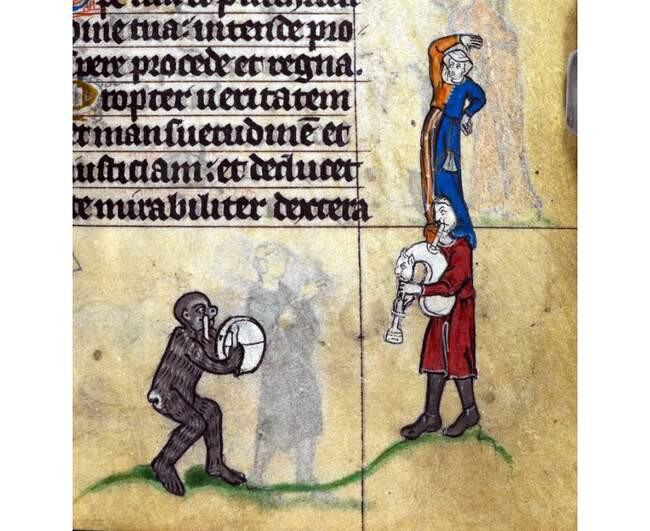 dine tua: intende pro
spere procede et regna.
Propter ueritatem
et mansuetudinē et
iusticiam: et deducet
te mirabiliter dextera